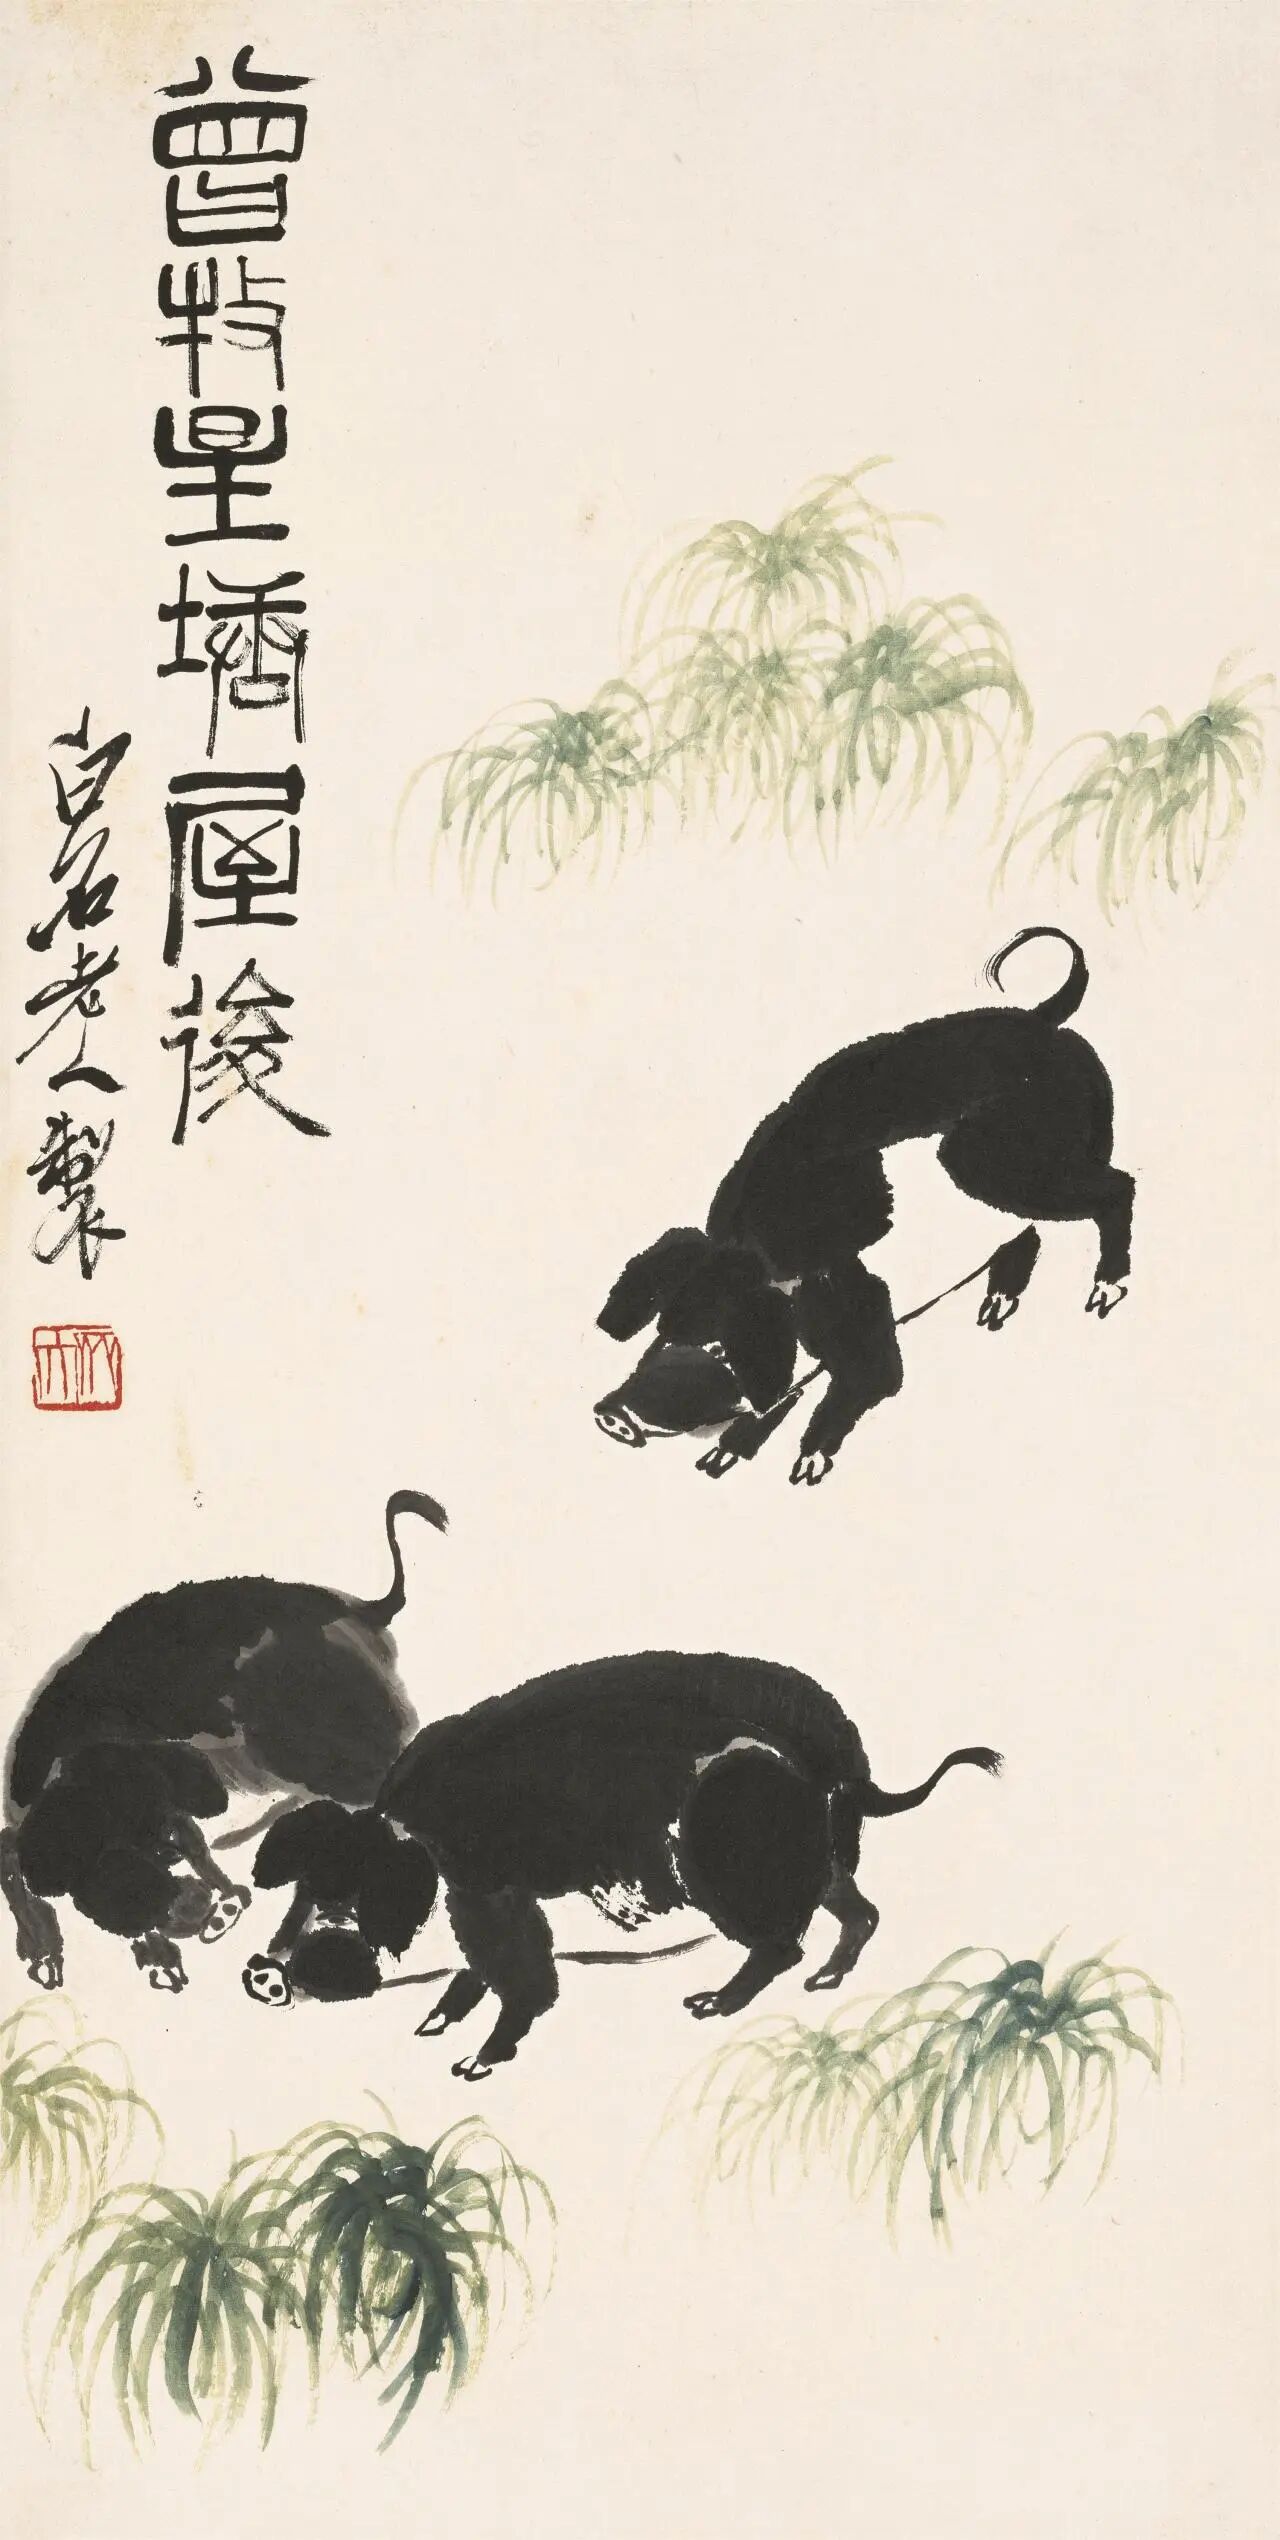 曾牧星塘屋後
白石老人製
齊大